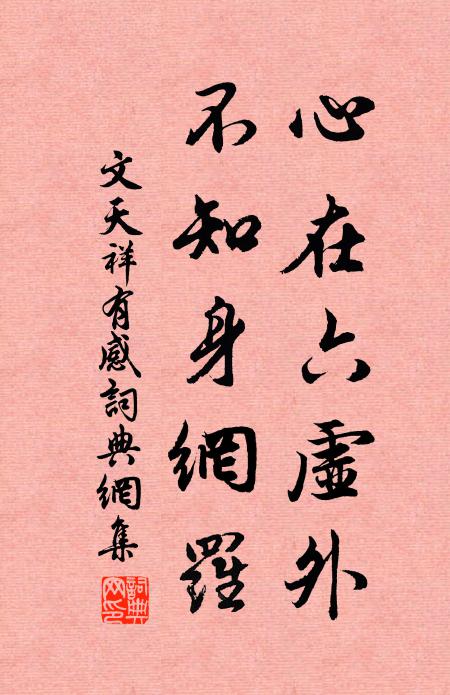 心在六虛外
不知身網羅
文天祥有感詞典網集
詞典網印